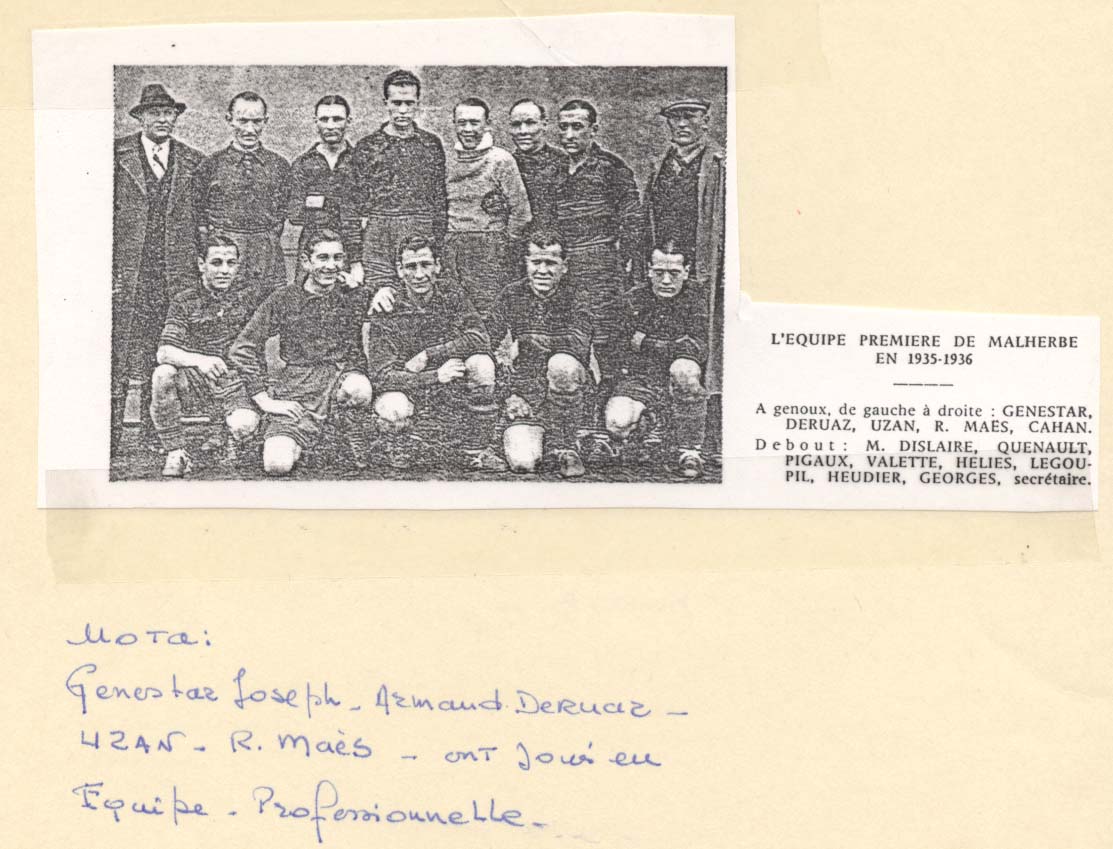 L'EQUIPE PREMIERE DE MALHERBE
EN 1935-1936
A genoux, de gauche à droite : GENESTAR,
DERUAZ, UZAN, R. MAËS, CAHAN.
Debout : M. DISLAIRE, QUENAULT,
PIGAUX, VALETTE, HELIES, LEGOU-
PIL, HEUDIER, GEORGES, secrétaire.
Nota :
Genestar Joseph - Armand Deruaz -
UZAN - R. Maës - ont Joué en
Equipe - Professionnelle -